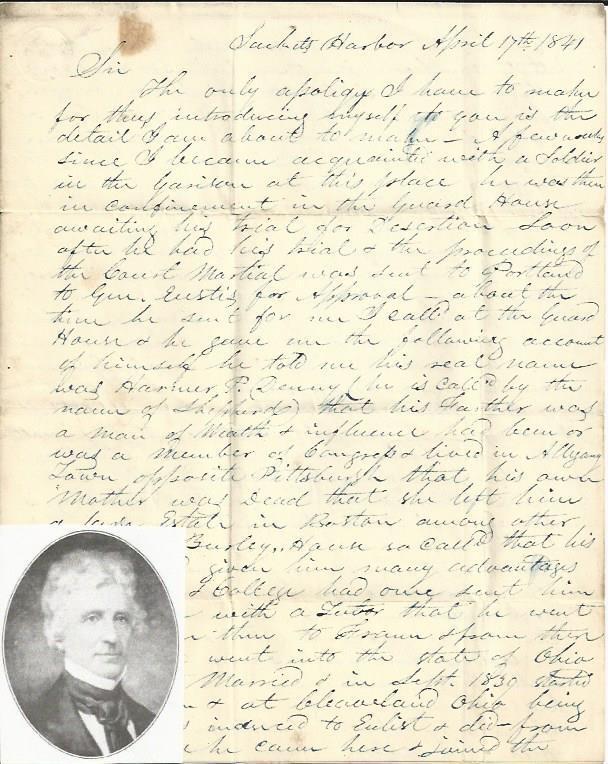 Sackets Harbor April 17th 1841
Sir
The only apoligy I have to make
for thus introducing myself to you is the
detail I am about to make - A few weeks
since I became acquainted with a Soldier
in the Garison at this place he was then
in confinement in the Guard House
awaiting his trial for Desertion Soon
after he had his trial & the proceedings of
the Court Martial was sent to Portland
to Gen. Eustis, for Approval - about the
time he sent for me I call'd at the Guard
House & he gave me the following account
of himself he told me his real name
was Harmer P. Denny (he is call'd by the
name of Shepherd) that his Farther was
a man of Wealth & influence had been or
was a member of Congress & lived in Allegany
Town opposite Pittsburgh that his own
Mother was Dead that she left him
a Estate in Boston among other
Burley,, House so call'd that his
given him many advantages
& College had once sent him
with a Tutor that he went
then to France & from there
went into the state of Ohio
Married & in Sept. 1839 started
& at Cleaveland Ohio being
induced to Enlist & did - from
he came here & joined the